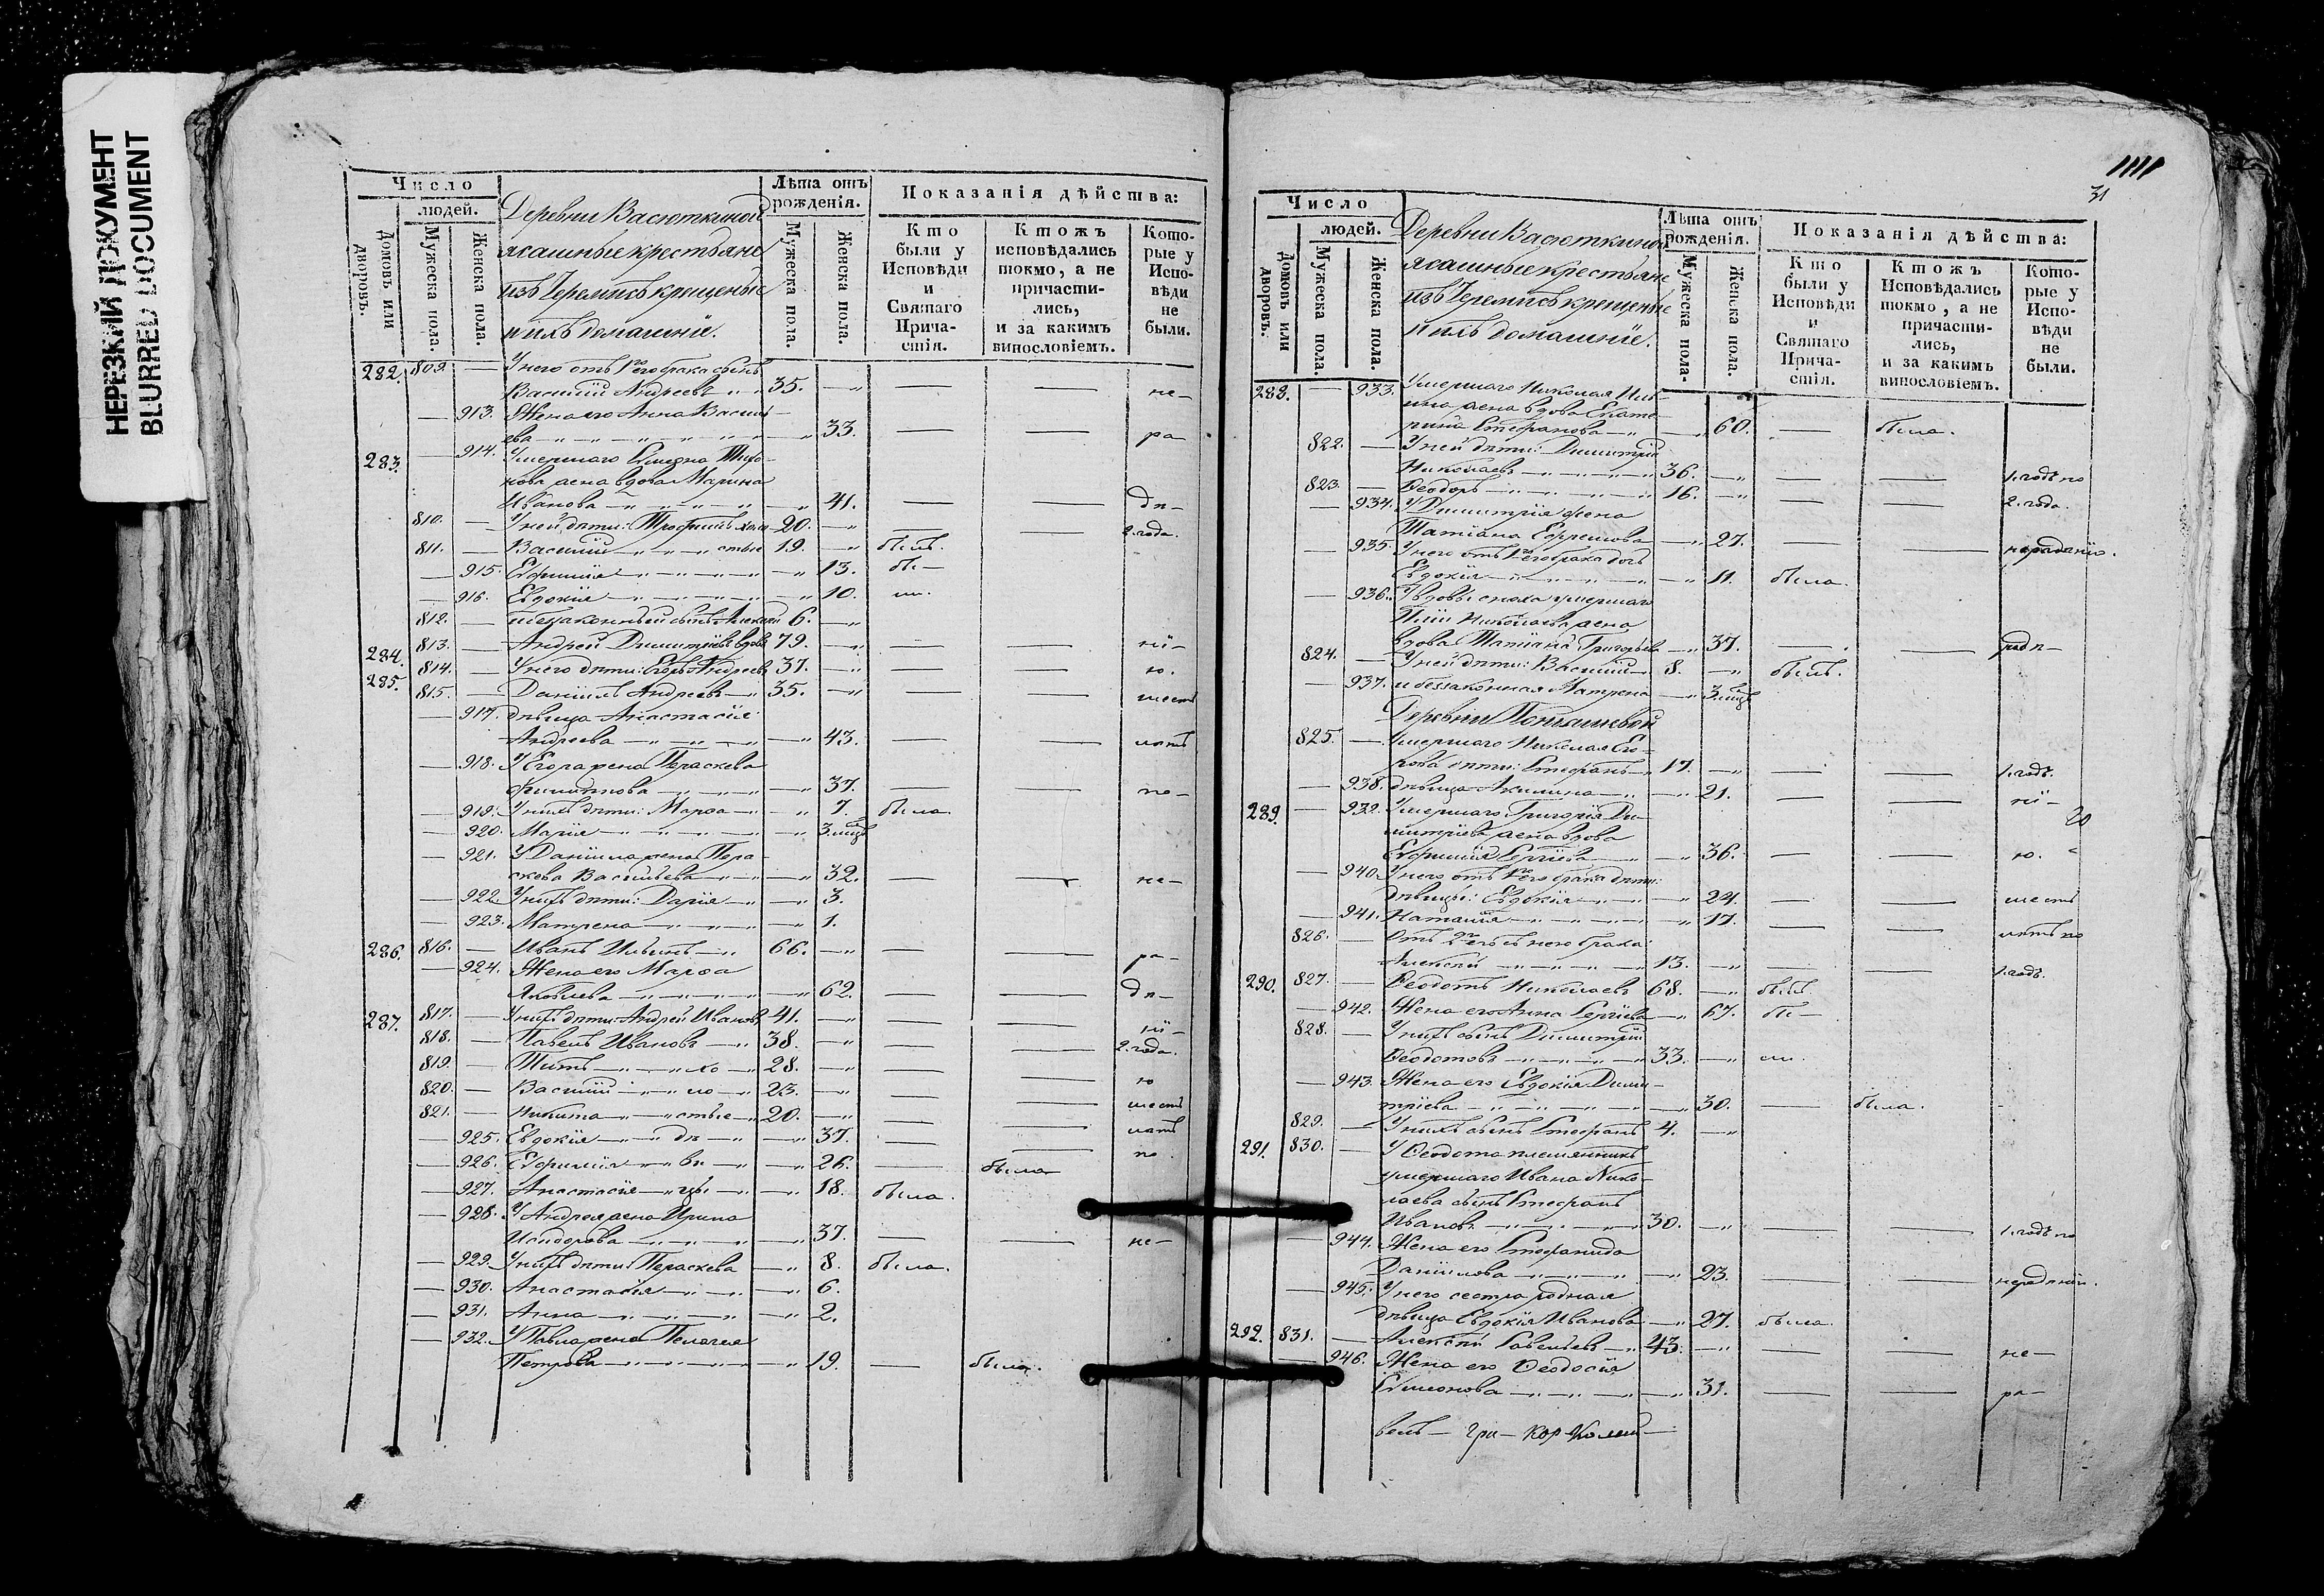 НЕРЕЗКИЙ ДОКУМЕНТ
BLURRED DOCUMENT
Число
людей.
Домовъ или дворовъ.
Мужеска пола.
Женска пола.
Деревни Васюткиной
ясашные крестьяне
изъ Черемисъ крещеные
и ихъ домашніе.
Лѣта отъ рожденія.
Мужеска пола.
Женска пола.
Показанія дѣйства:
Кто были у Исповѣди и Святаго Причастія.
Ктожъ исповѣдались токмо, а не причастились, и за какимъ винословіемъ.
Которые у Исповѣди не были.
282. 809. — У него отъ 1го брака сынъ
Василий Андреевъ 35. — — не-
— 913. Жена его Анна Василь-
ева 33. — — ра-
283. — 914. Умершаго Симеона Тихо-
нова жена вдова Марина
Иванова 41. — — дѣ-
810. — У ней дѣти: Трофимъ холо- 20. — — 2. года.
811. — Василий стые 19. былъ.
— 915. Евфимія 13. бы-
— 916. Евдокія 10. ли.
812. — незаконный сынъ Алексѣй 6.
284. 813. — Андрей Димитріевъ вдовъ 79. — — ні-
814. — У него дѣти: Егоръ Андреевъ 37. — — ю.
285. 815. — Даніилъ Андреевъ 35. — — шесть
— 917. дѣвица Анастасія
Андреева 43. — — лѣтъ
— 918. У Егора жена Параскева
Филиппова 37. — — не-
— 919. У нихъ дѣти: Марѳа 7. была.
— 920. Марія 3. мцъ
— 921. У Даніила жена Пара-
скева Васильева 32. — — не-
— 922. У нихъ дѣти: Дарія 3.
— 923. Матрена 1.
286. 816. — Иванъ Ильинъ 66. — — ра-
— 924. Жена его Марѳа
Яковлева 62. — — дѣ-
287. 817. — У нихъ дѣти: Андрей Ивановъ 41. — — ні-
818. — Павелъ Ивановъ 38. — — 2. года.
819. — Титъ хо 28. — — ю
820. — Василий ло 23. — — шесть
821. — Никита стые 20. — — лѣтъ
— 925. Евдокія дѣ 37. — — по
— 926. Евфимія ви 26. — была
— 927. Анастасія цы 18. была.
— 928. У Андрея жена Ирина
Исидорова 37. — — не-
— 929. У нихъ дѣти: Параскева 8. была.
— 930. Анастасія 6.
— 931. Анна 2.
— 932. У Павла жена Пелагея
Петрова 19. — была.
31
Число
людей.
Домовъ или дворовъ.
Мужеска пола.
Женска пола.
Деревни Васюткиной
ясашные крестьяне
изъ Черемисъ крещеные
и ихъ домашніе.
Лѣта отъ рожденія.
Мужеска пола.
Женска пола.
Показанія дѣйства:
Кто были у Исповѣди и Святаго Причастія.
Ктожъ Исповѣдались токмо, а не причастились, и за какимъ винословіемъ.
Которые у Исповѣди не были.
288. — 933. Умершаго Николая
жена вдова Екате-
рина Стефанова 60. — была.
822. — У ней дѣти: Димитрій
Николаевъ 36. — — 1. годъ по
823. — Ѳеодоръ 16. — — 2. года.
— 934. У Димитрія жена
Татіана Ефремова 27. — — нерадѣнію.
— 935. У него отъ 1го брака дочь
Евдокія 11. была.
— 936. У вдовы сноха умершаго
Николаева жена
вдова Татіана Григорьева 37. — —
824. — У ней дѣти: Василий 8. былъ.
— 937. и беззаконная Матрена 3 мцъ
Деревни
825. — Умершаго Николая Его-
рова дѣти: Стефанъ 17. — — 1. годъ.
— 938. дѣвица Акилина 21. — — ні-
289. — 939. Умершаго Григорія Ди-
митріева жена вдова
Евфимія Сергіева 36. — — ю.
20
— 940. У него отъ 1го брака дѣти:
дѣвицы: Евдокія 24. — — шесть
— 941. Наталія 17. — — лѣтъ по
826. — Отъ 2го съ нею брака:
Алексѣй 13. — — 1. годъ.
290. 827. — Ѳеодотъ Николаевъ 68. былъ
— 942. Жена его Анна Сергіева 67. бы-
828. — У нихъ сынъ Димитрій
Ѳеодотовъ 33. ли.
— 943. Жена его Евдокія Дими-
тріева 30. — была.
829. — У нихъ сынъ Стефанъ 4.
291. 830. — У Ѳеодота племянникъ
умершаго Ивана Нико-
лаева сынъ Стефанъ
Ивановъ 30. — — 1. годъ по
— 944. Жена его Стефанида
Даниилова 23. — — нерадѣнію.
— 945. У него сестра родная
дѣвица Евдокія Иванова 27. была.
292. 831. — Алексѣй Савельевъ 43. — — не-
— 946. Жена его Ѳеодосія
Симонова 31. — — ра-